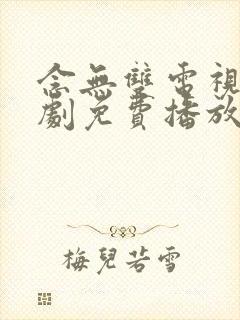 念無雙電視
劇免費播放
梅兒若雪